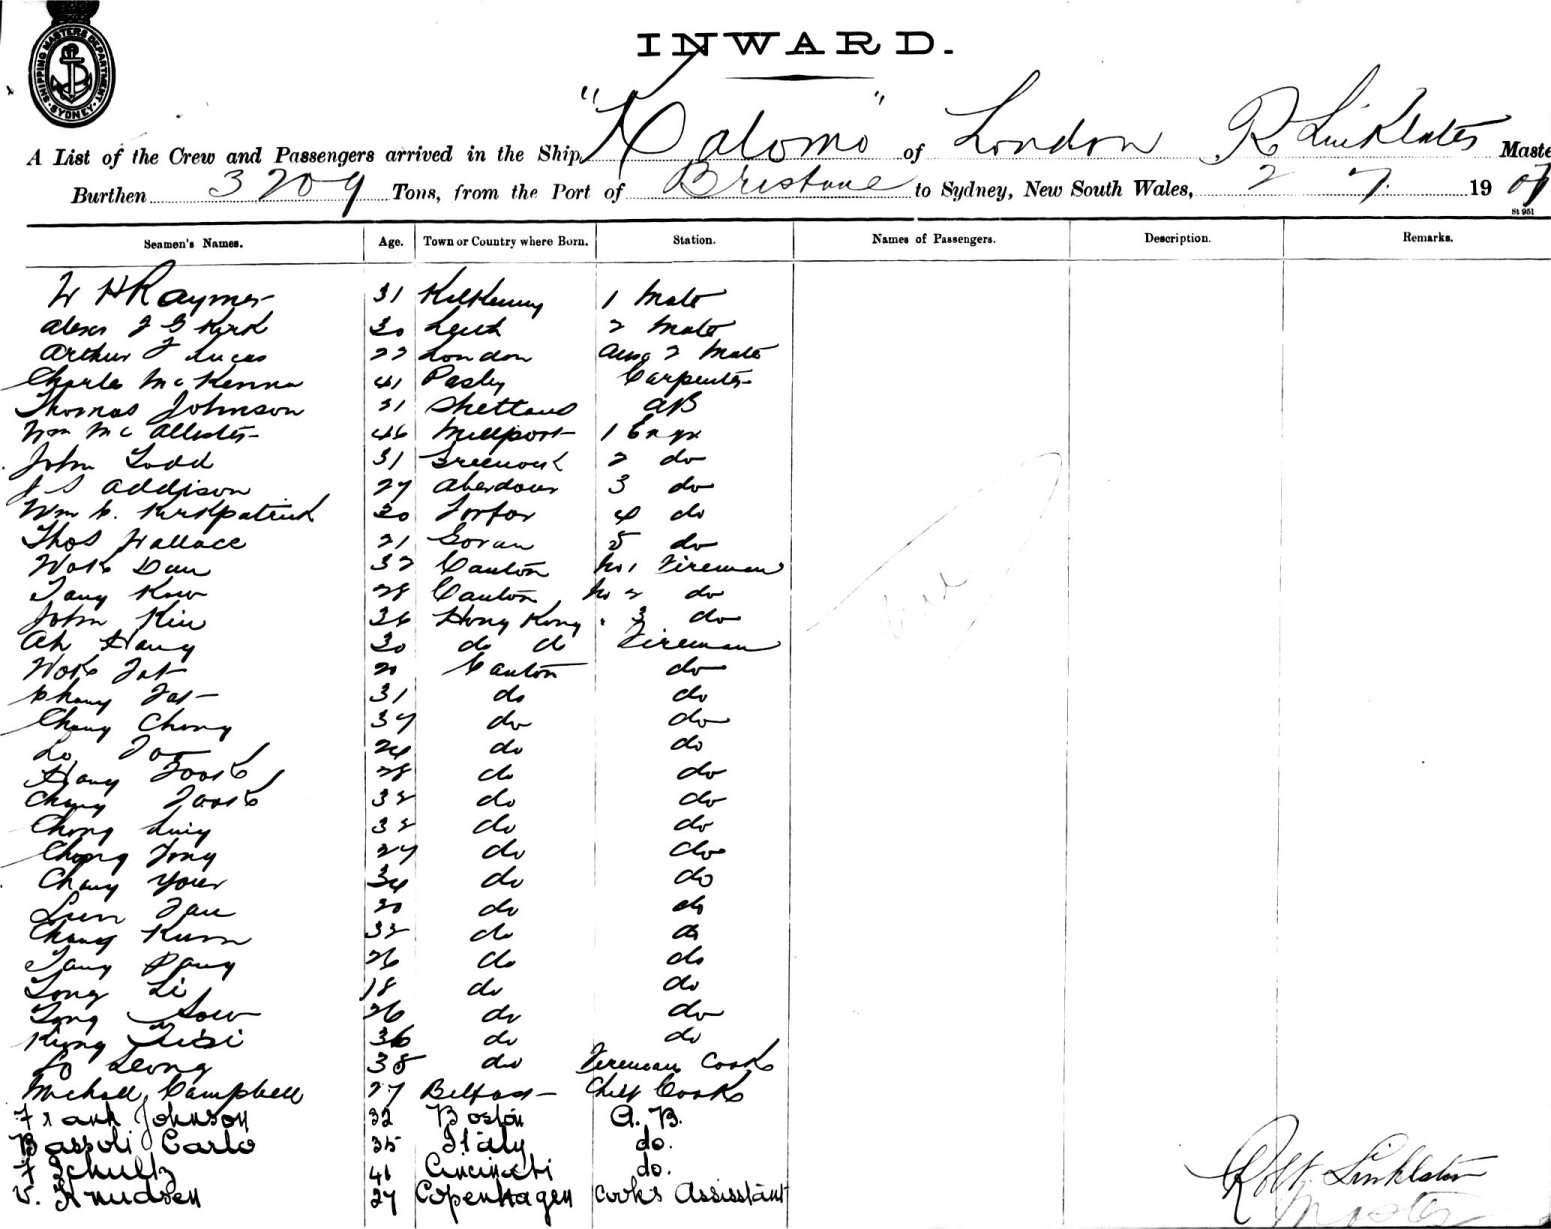 SHIPPING MASTERS DEPARTMENT SYDNEY
INWARD.
A List of the Crew and Passengers arrived in the Ship "Kalomo" of London R Linklater Maste
Burthen 3209 Tons, from the Port of Brisbane to Sydney, New South Wales, 2 7. 1907
St 951
Seamen's Names. Age. Town or Country where Born. Station. Names of Passengers. Description. Remarks.
W H Raymer 31 Kilkenny 1 Mate
Alexr J G Kirk 30 Leith 2 Mate
Arthur F Lucas 22 London 2 Mate
Charles McKenna 41 Pasley Carpenter
Thomas Johnson 31 AB
Wm McAllister 46 Millport 1 Engr
John Todd 31 Greenock 2 do
J S Addison 27 Aberdour 3 do
Wm Kirkpatrick 30 Forfar 4 do
Thos Wallace 21 Govan 5 do
Wok Dan 32 Canton No 1 Fireman
Tang Kow 28 Canton No 2 do
John Kin 36 Hong Kong 3 do
Ah Hang 30 do do Fireman
Wok Fat 20 Canton do
Chang Fat 31 do do
Chang Chong 37 do do
Lo Foo 24 do do
Hang Fook 28 do do
Chang Fook 32 do do
Chong Luig 32 do do
Chong Tong 27 do do
Chang Youer 34 do do
Lum Fau 20 do do
Chang Kum 32 do do
Tang Pang 26 do do
Tong Li 18 do do
Tong Sow 26 do do
Kiong 36 do do
Lo Leong 38 do Fireman Cook
Michall Campbell 27 Belfast Chief Cook
Frank Johnson 32 Boston A.B.
Bassoli Carlo 35 Italy do.
F Schultz 41 Cincineti do.
V. Knudsen 27 Copenhagen Cooks Assisstant
Robt. Linklater
Master